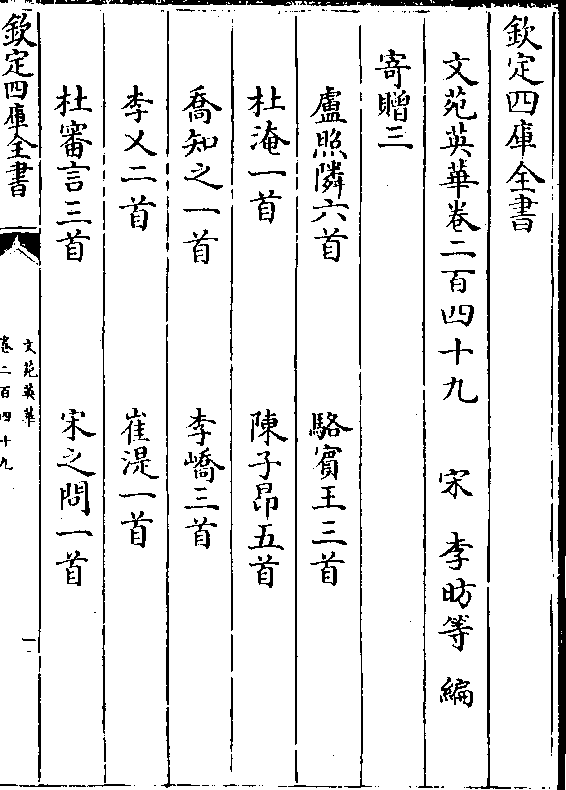 欽定四庫全書
文苑英華卷二百四十九 宋 李昉等 編
寄贈三
盧照隣六首 駱賓王三首
杜淹一首 陳子昂五首
喬知之一首 李嶠三首
李乂二首 崔湜一首
杜審言三首 宋之問一首
欽定四庫全書 文苑英華 卷二百四十九 一